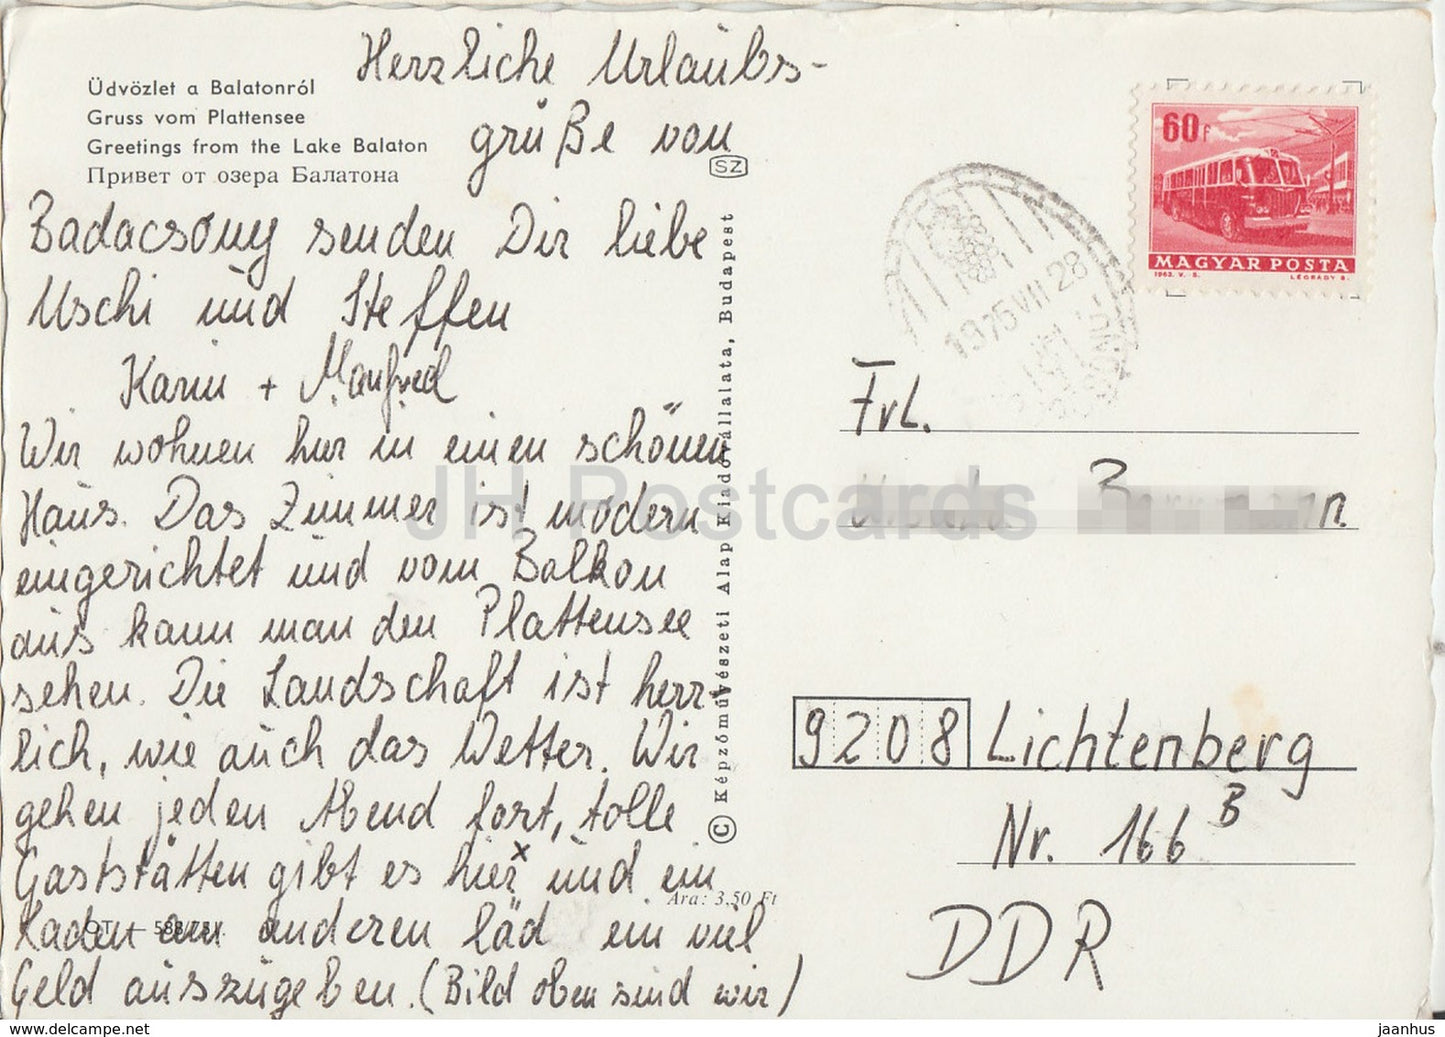 Üdvözlet a Balatonról
Gruss vom Plattensee
Greetings from the Lake Balaton
Привет от озера Балатона
Herzliche Urlaubs-
grüße von
Badacsony senden Dir liebe
Uschi und Steffen
Karin + Manfred
Wir wohnen hir in einen schönen
Haus. Das Zimmer ist modern
eingerichtet und vom Balkon
aus kann man den Plattensee
sehen. Die Landschaft ist herr-
lich, wie auch das Wetter. Wir
gehen jeden Abend fort, tolle
Gaststätten gibt es hier x und ein
Laden am anderen läd ein viel
Geld auszugeben. (Bild oben sind wir)
SZ
© Képzőművészeti Alap Kiadóvállalata, Budapest
Ára: 3,50 Ft
60f
MAGYAR POSTA
1963. V. S.
LÉGRÁDY S.
1975 VII 28
Frl.
9208 Lichtenberg
Nr. 166 B
DDR
JH Postcards
www.delcampe.net
jaanhus